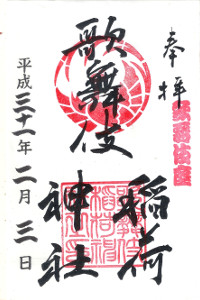 奉拝
歌舞伎座
歌舞伎
稲荷
神社
平成三十一年二月三日